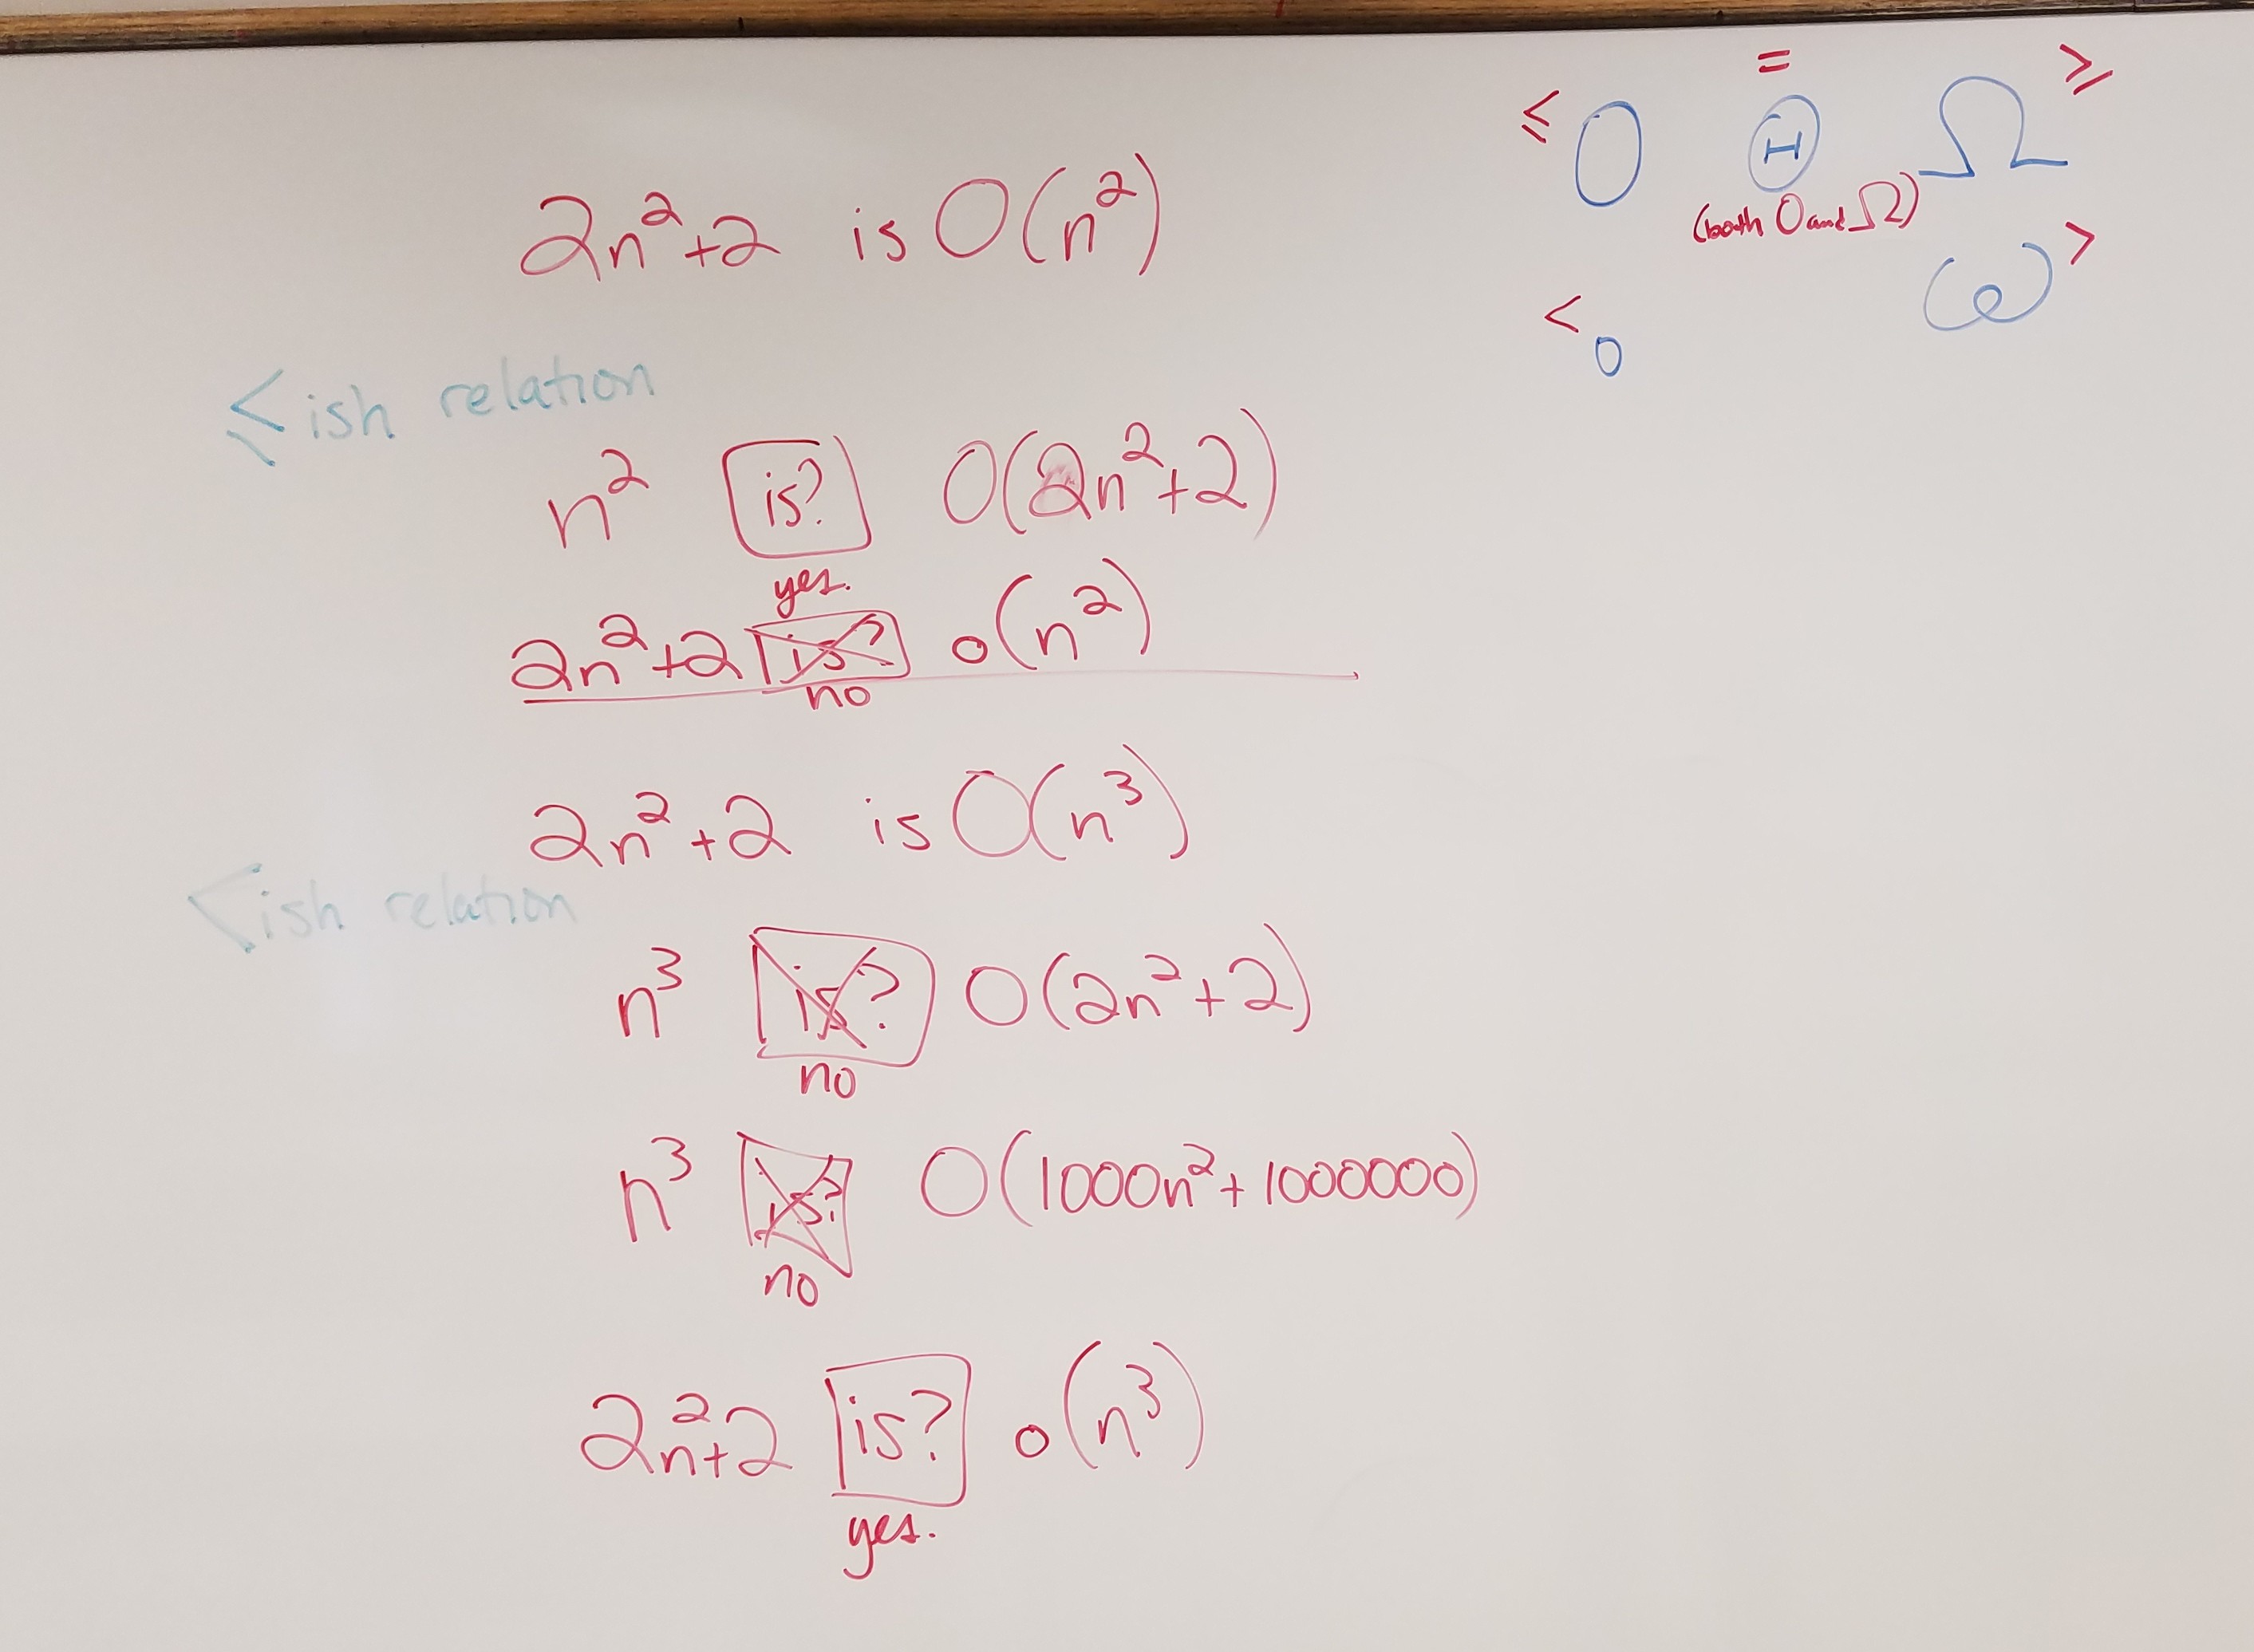 2n²+2 is O(n²)
≤ish relation
n² is? O(2n²+2)
yes.
2n²+2 is? o(n²)
no
2n²+2 is O(n³)
<ish relation
n³ is? O(2n²+2)
no
n³ is? O(1000n²+1000000)
no
2n²+2 is? o(n³)
yes.
≤ O = Θ Ω ≥
(both O and Ω)
< o ω >